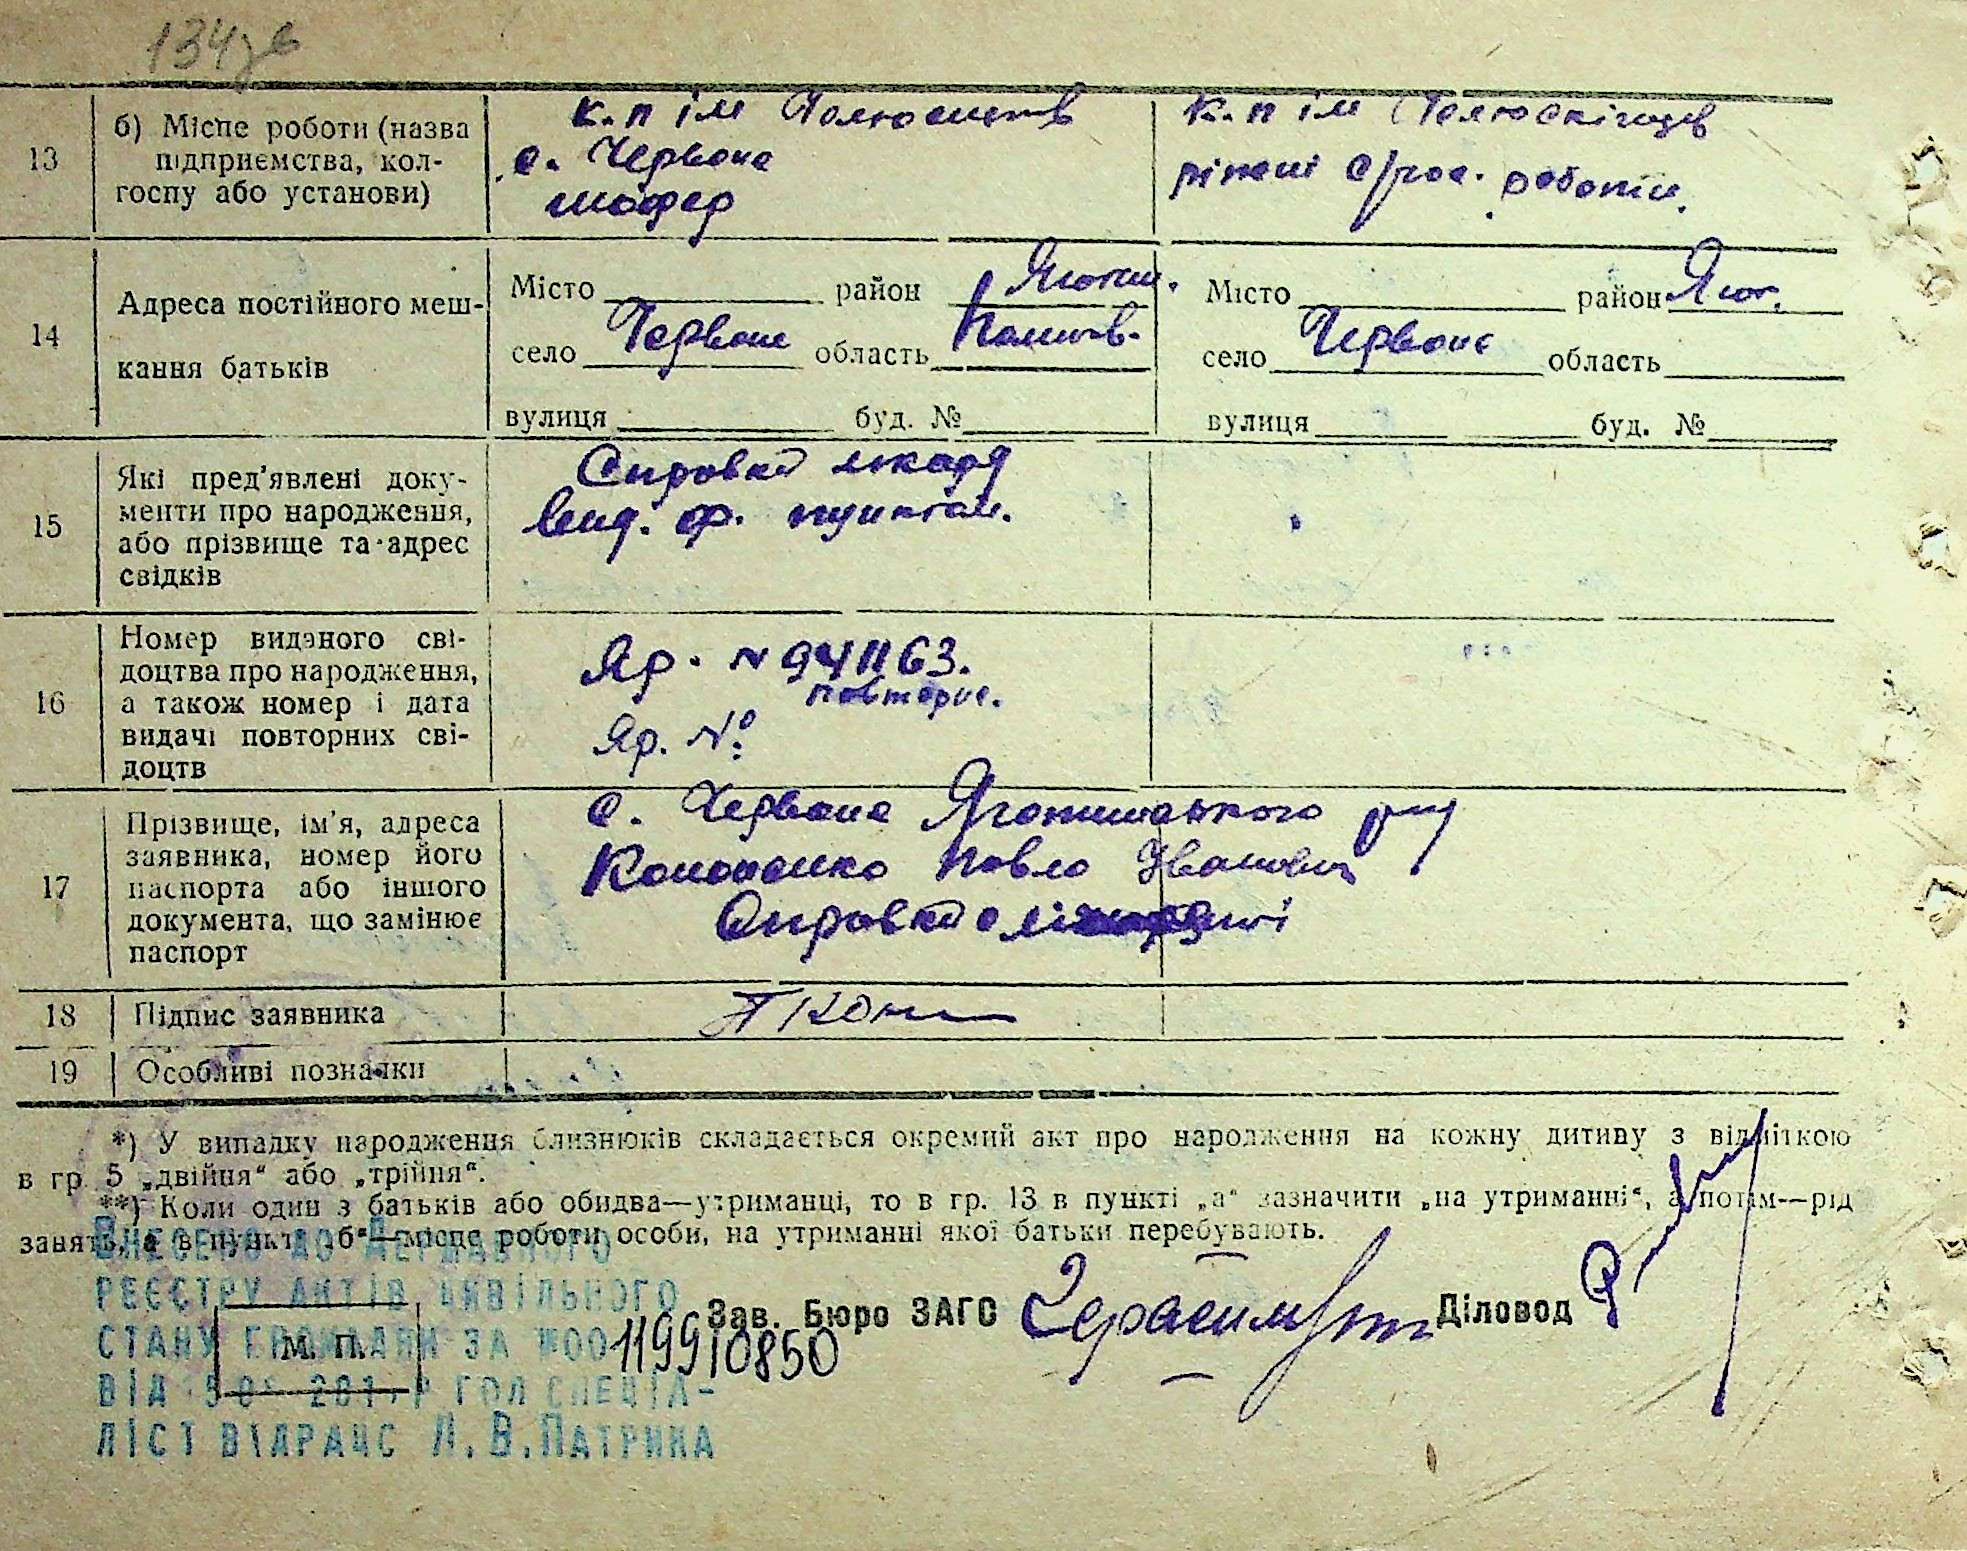 134зв
13
б) Місце роботи (назва
підприємства, кол-
госпу або установи)
к.п ім Челюскинців
с. Червоне
шофер
к.п ім Челюскінців
різні с/гос. роботи.
14
Адреса постійного меш-
кання батьків
Місто район Яготин.
село Червоне область Полтав.
вулиця буд. №
Місто район Ягот.
село Червоне область
вулиця буд. №
15
Які пред'явлені доку-
менти про народження,
або прізвище та адрес
свідків
Справка лікаря
вид. ф. пунктом.
16
Номер виданого сві-
доцтва про народження,
а також номер і дата
видачі повторних сві-
доцтв
Яр. № 941163.
повторне.
Яр. №:
17
Прізвище, ім'я, адреса
заявника, номер його
паспорта або іншого
документа, що замінює
паспорт
с. Червоне Яготинського р-ну
Кононенко Павло Іванович
Справка с
18
Підпис заявника
П Кон
19
Особливі позначки
*) У випадку народження близнюків складається окремий акт про народження на кожну дитину з відміткою
в гр. 5 „двійня“ або „трійня“.
**) Коли один з батьків або обидва—утриманці, то в гр. 13 в пункті „а“ зазначити „на утриманні“, а потім—рід
занять, а в пункті „б“—місце роботи особи, на утриманні якої батьки перебувають.
Внесено до Державного
реєстру актів цивільного
стану громадян за №00119910850
від р гол специа-
ліст відрацс Л.В.Патрика
М. П.
Зав. Бюро ЗАГС
Діловод